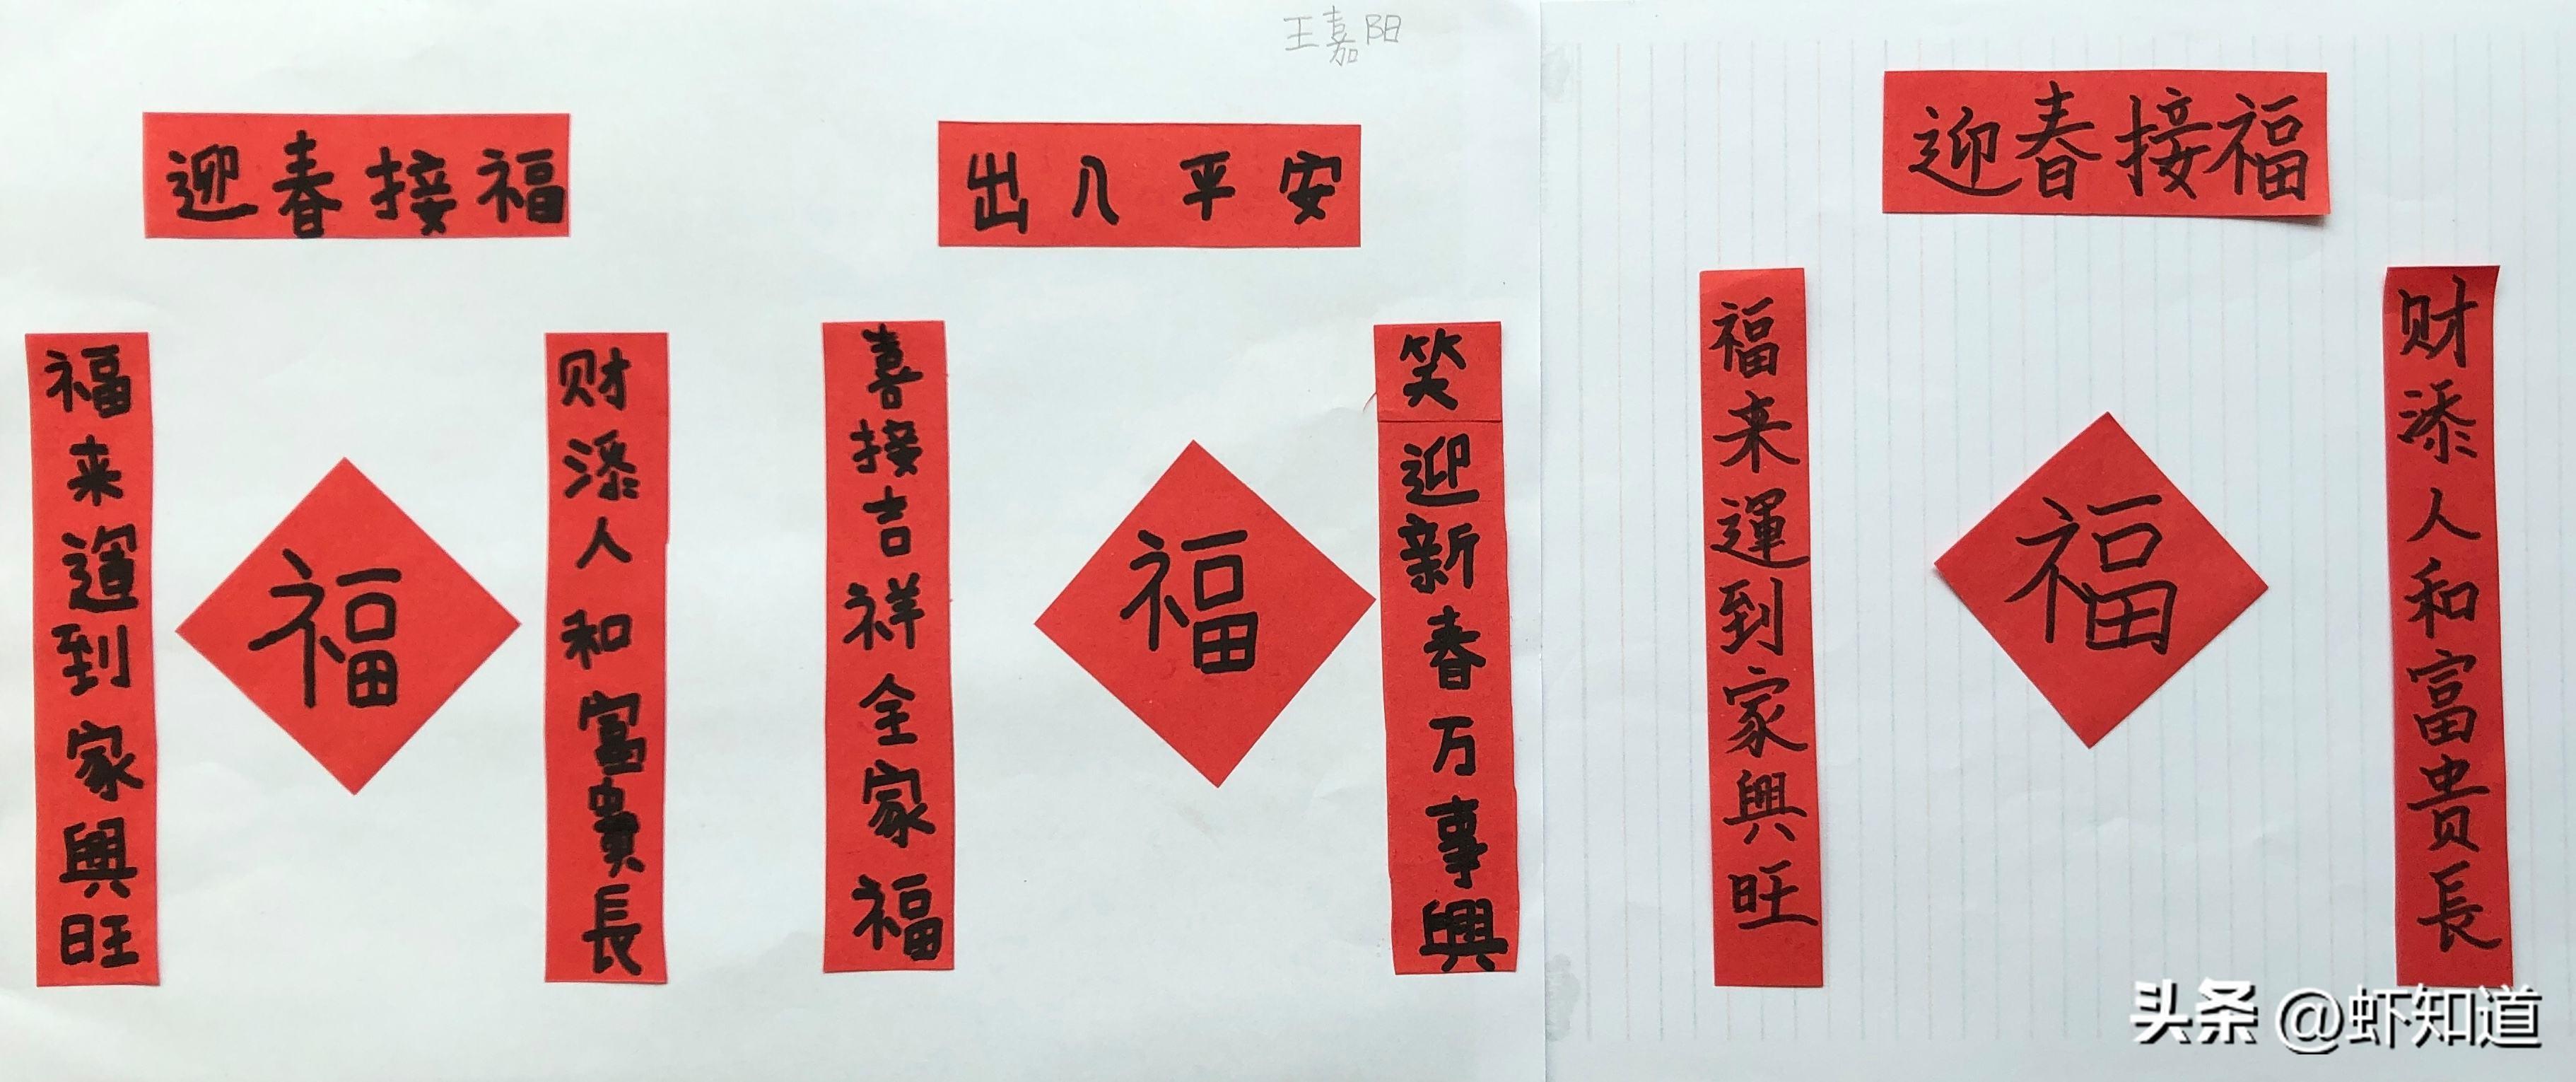 王嘉阳
迎春接福
福来運到家興旺
福
财添人和富貴長
出入平安
喜接吉祥全家福
福
笑迎新春万事興
迎春接福
福来運到家興旺
福
财添人和富贵長
头条 @虾知道